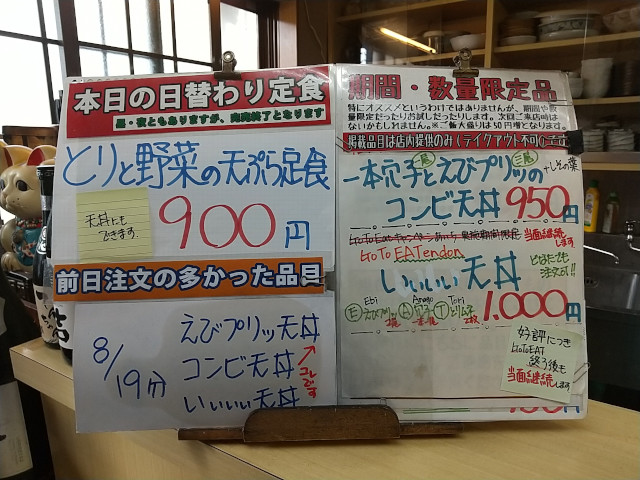 本日の日替わり定食
昼・夜ともありますが、売切終了となります
とりと野菜の天ぷら定食
天丼にも
できます。
900円
前日注文の多かった品目
8/19分
えびプリッ天丼
コンビ天丼
いいいい天丼
コレです
期間・数量限定品
特にオススメというわけではありませんが、期間や数
量限定だったりお試しだったりします。次回ご来店時は
ないかもしれません。※ご飯大盛りは50円増となります。
掲載品目は店内提供のみ(テイクアウト不可)
一本穴子とえびプリッツの
+しその葉
コンビ天丼 950円
GoToEatキャンペーン
当面継続します
GoTo EATendon
いいいい天丼
どなたでも
注文可!!
Ebi Anago Tori
E えびプリッ A 穴子 T とりムネ
1,000円
好評につき
GoToEAT
終了後も
当面継続します